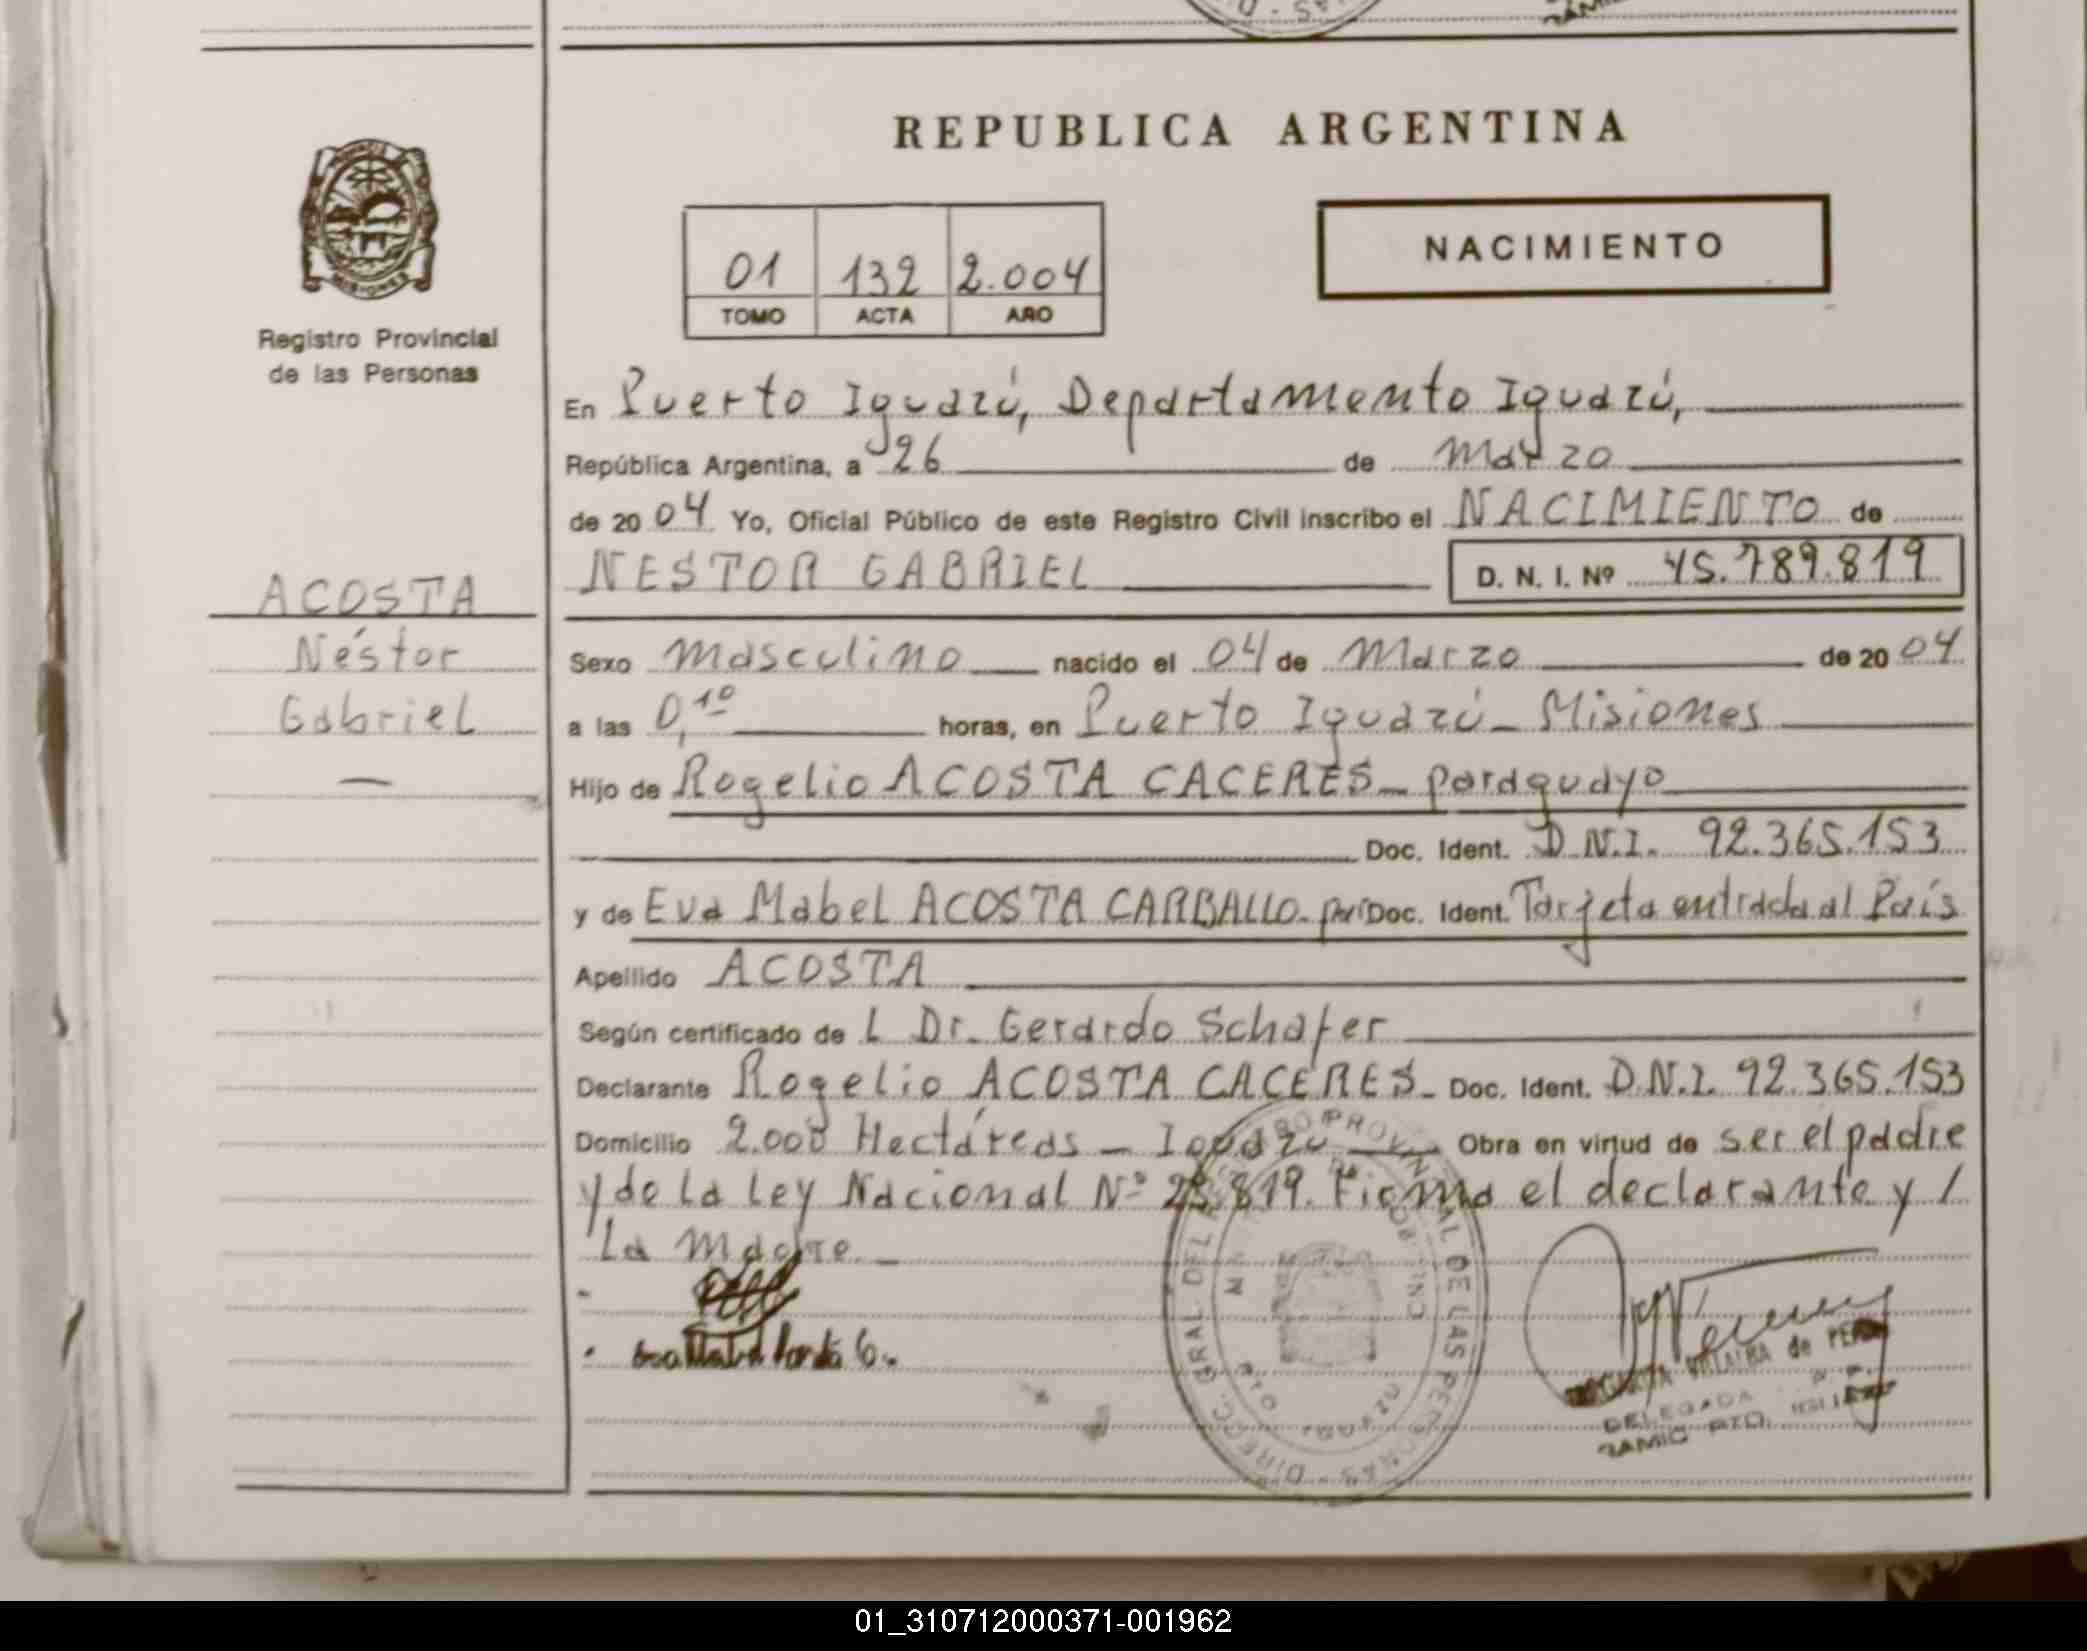 REPUBLICA ARGENTINA
NACIMIENTO
01 132 2.004
TOMO ACTA AÑO
Registro Provincial
de las Personas
En Puerto Iguazú, Departamento Iguazú,
República Argentina, a 26 de Marzo
de 2004 Yo, Oficial Público de este Registro Civil inscribo el NACIMIENTO de
NESTOR GABRIEL D. N. I. Nº 45.789.819
ACOSTA
Néstor
Gabriel
Sexo Masculino nacido el 04 de Marzo de 2004
a las 0,10 horas, en Puerto Iguazú - Misiones
Hijo de Rogelio ACOSTA CACERES - paraguayo
Doc. Ident. D.N.I. 92.365.153
y de Eva Mabel ACOSTA CARBALLO - Doc. Ident. Tarjeta entrada al País
Apellido ACOSTA
Según certificado de L Dr. Gerardo Schafer
Declarante Rogelio ACOSTA CACERES - Doc. Ident. D.N.I. 92.365.153
Domicilio 2.000 Hectáreas - Iguazú Obra en virtud de ser el padre
y de la Ley Nacional Nº 25.819. Firma el declarante y /
La Madre. -
DIRECC. GRAL DEL PROVINCIAL DE LAS PERSONAS
de
DELEGADA
RAMIC PTO. IGUAZU
01_310712000371-001962